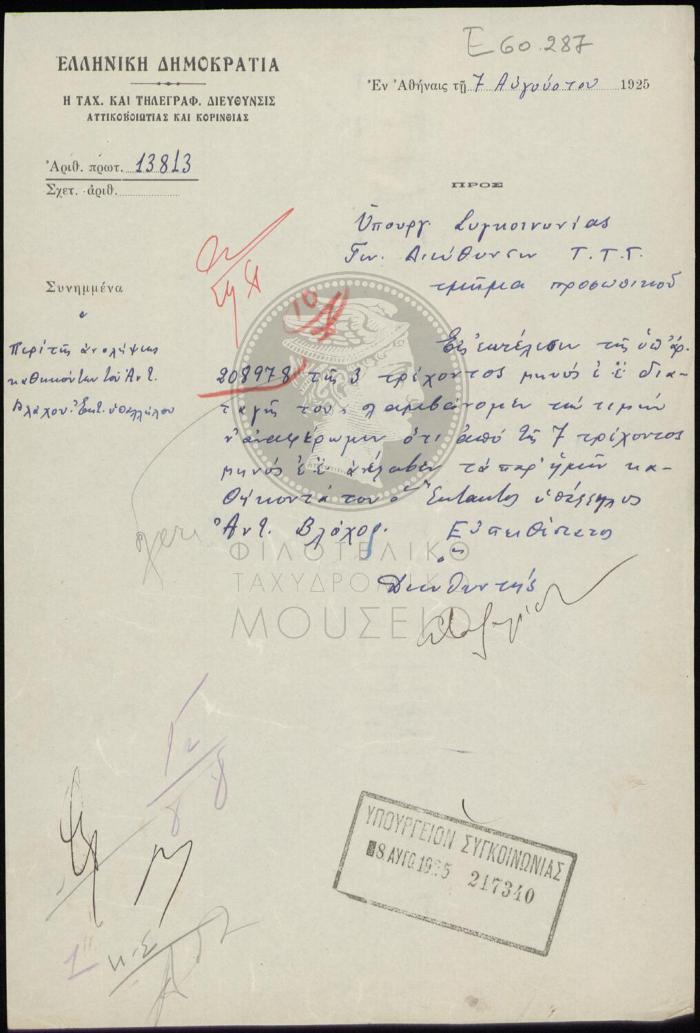 Ε60.287
ΕΛΛΗΝΙΚΗ ΔΗΜΟΚΡΑΤΙΑ
Η ΤΑΧ. ΚΑΙ ΤΗΛΕΓΡΑΦ. ΔΙΕΥΘΥΝΣΙΣ
ΑΤΤΙΚΟΒΟΙΩΤΙΑΣ ΚΑΙ ΚΟΡΙΝΘΙΑΣ
Ἐν Ἀθήναις τῇ 7 Αὐγούστου 1925
Ἀριθ. πρωτ. 13813
Σχετ. ἀριθ.
ΠΡΟΣ
Ὑπουργ Συγκοινωνίας
Γεν. Διεύθυνσιν Τ.Τ.Τ.
τμῆμα προσωπικοῦ
Συνημμένα
Περὶ τῆς ἀναλήψεως
καθηκόντων τοῦ Ἀντ.
Βλάχου Ἐκτ. ὑπαλλήλου
Εἰς ἐκτέλεσιν τῆς ὑπ' ἀρ.
208978 τῆς 3 τρέχοντος μηνὸς ἐ ἔ δια-
ταγῆς του, λαμβάνομεν τὴν τιμὴν
ν' ἀναφέρωμεν ὅτι ἀπὸ τῆς 7 τρέχοντος
μηνὸς ἐ ἔ ἀνέλαβεν τὰ παρ' ἡμῖν κα-
θήκοντά του ὁ Ἔκτακτος ὑπάλληλος
Ἀντ. Βλάχος. Εὐπειθέστατος
ὁ
Διευθυντὴς
ΦΙΛΟΤΕΛΙΚΟ
ΤΑΧΥΔΡΟΜΙΚΟ
ΜΟΥΣΕΙΟ
ΥΠΟΥΡΓΕΙΟΝ ΣΥΓΚΟΙΝΩΝΙΑΣ
8 ΑΥΓ 1925 217340